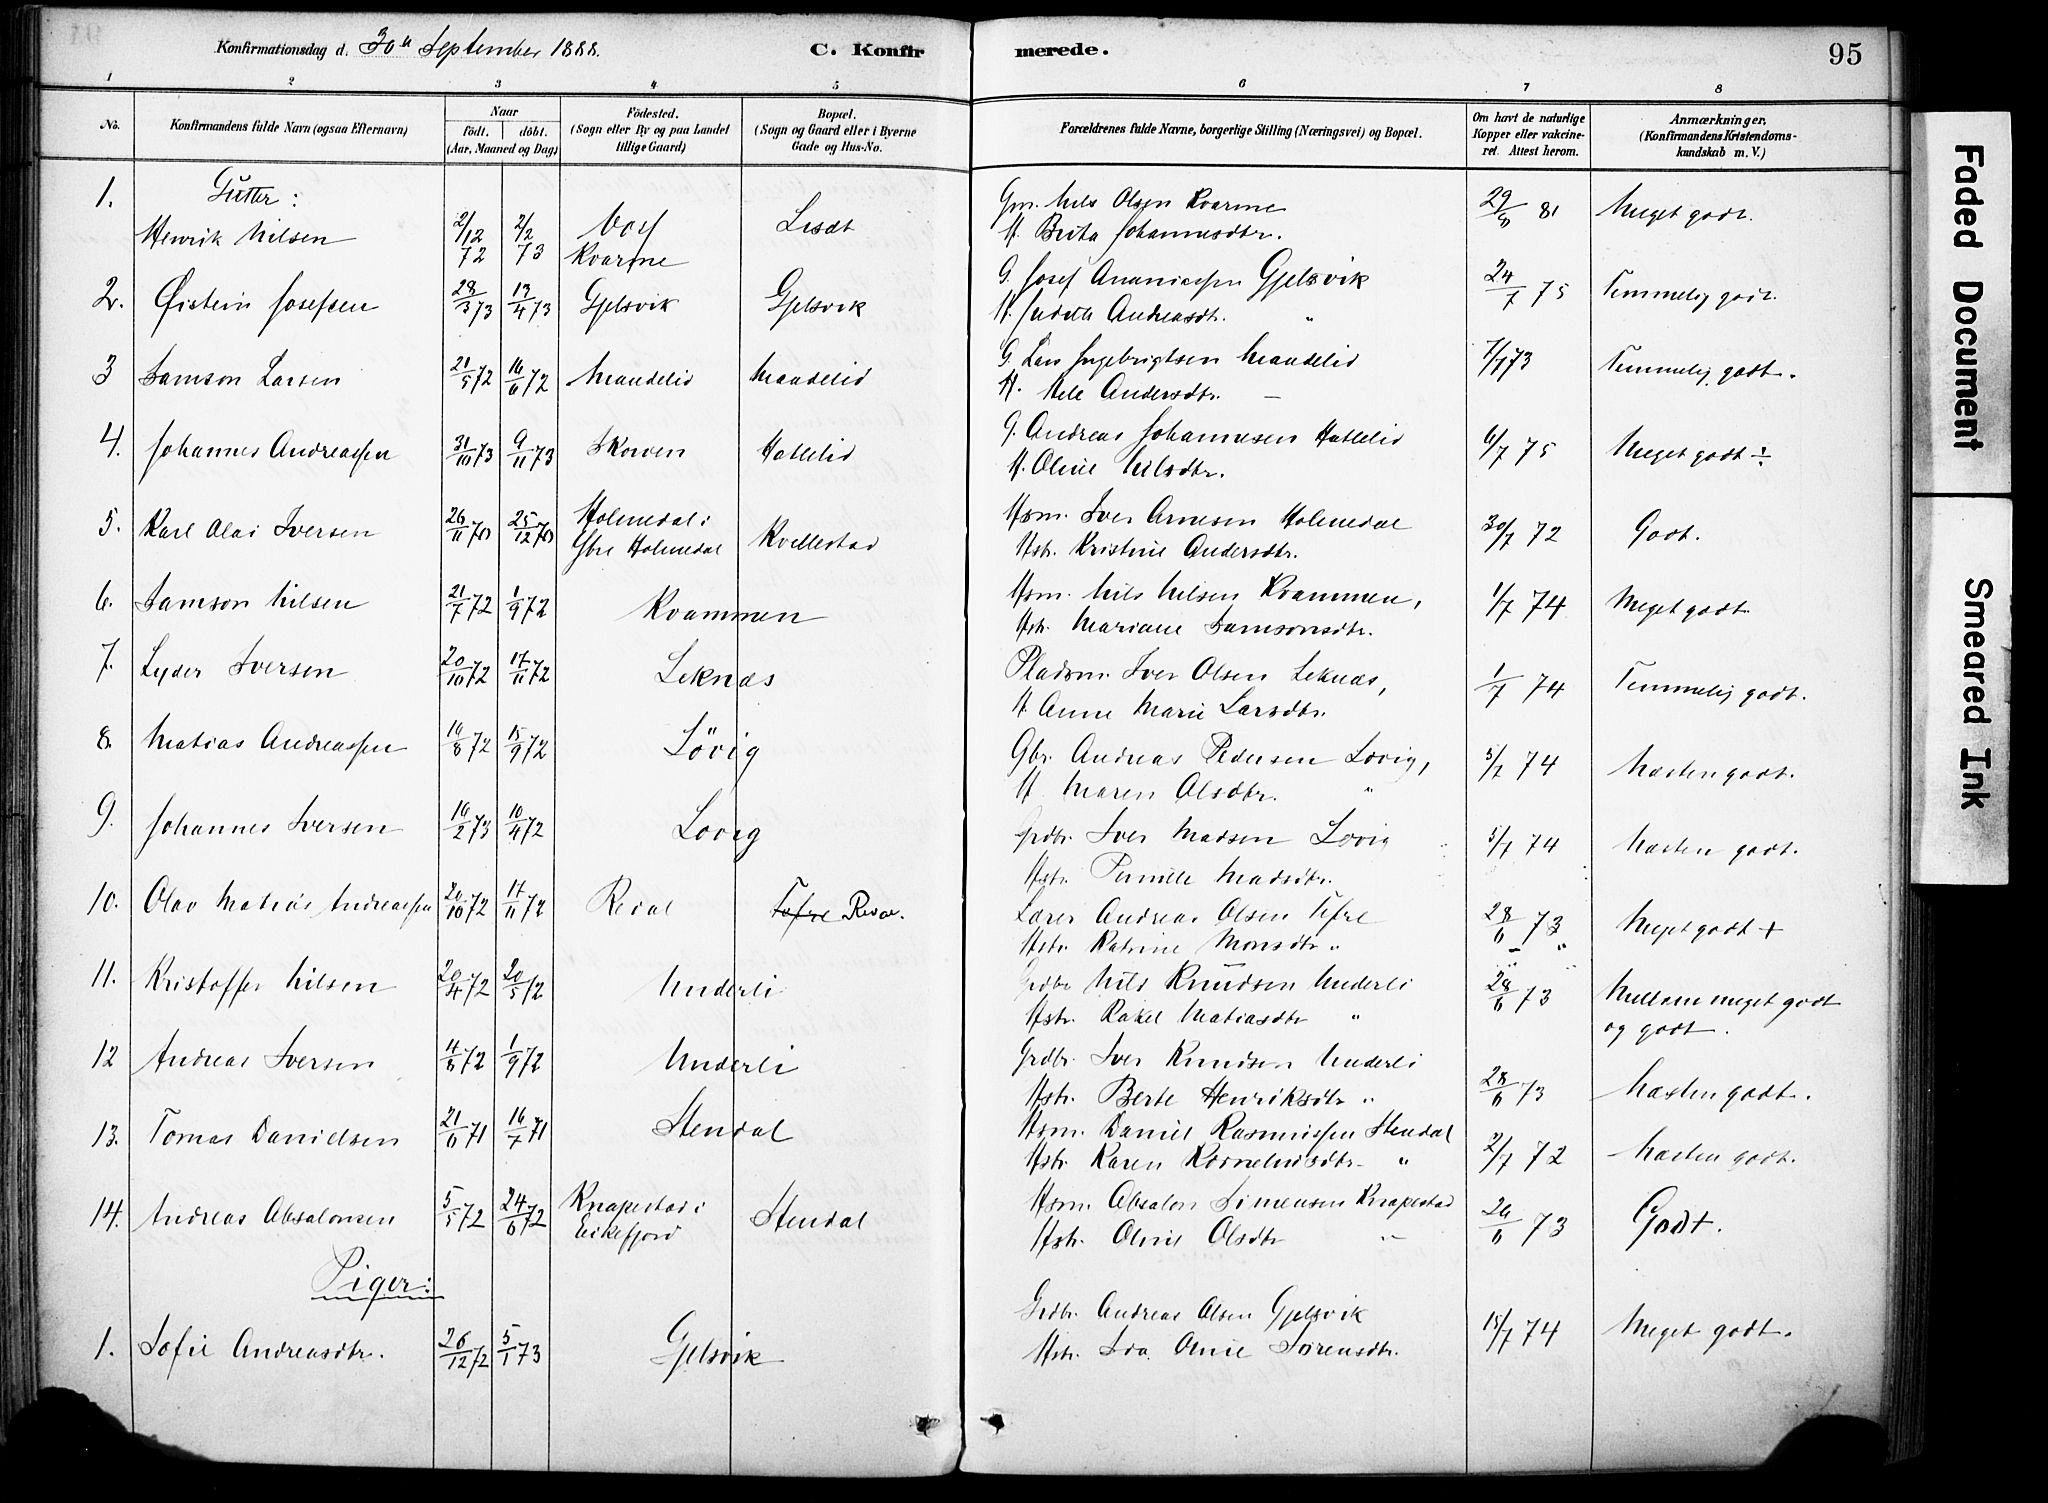 Konfirmationsdag d. 30te September 1888.
C. Konfirmerede.
95
1 2 3 4 5 6 7 8
No.
Konfirmandens fulde Navn (ogsaa Efternavn)
Naar
födt. döbt.
(Aar, Maaned og Dag)
Födested.
(Sogn eller By og paa Landet
tillige Gaard)
Bopæl.
(Sogn og Gaard eller i Byerne
Gade og Hus-No.
Forældrenes fulde Navne, borgerlige Stilling (Næringsvei) og Bopæl.
Om havt de naturlige
Kopper eller vakcine-
ret. Attest herom.
Anmærkninger,
(Konfirmandens Kristendoms-
kundskab m. V.)
Gutter:
1. Henrik Nilsen 2/12 72 2/2 73 Vos Kvarme
Gm. Nils Olsen Kvarme
H. Brita Johannesdtr.
29/6 81 Meget godt.
2. Øistein Josefsen 28/3 73 13/4 73 Gjelsvik Gjelsvik
G. Josef Ananiassen Gjelsvik
H. Judith Andreasdt. "
24/7 75 Temmelig godt.
3 Samson Larsen 21/5 72 16/6 72 Mandelid Mandelid
G. Lars Ingebrigtsen Mandelid
H. Nele Andersdtr. —
7/7 73 Temmelig godt.
4. Johannes Andreassen 31/10 73 9/11 73 Skorven Hatlelid
G. Andreas Johannesen Hatlelid
H. Oline Nilsdtr.
6/7 75 Meget godt ÷
5. Karl Olai Iversen 26/11 25/12 Holmedal i
Ytre Holmedal Kvellestad
Hsm. Iver Arnesen Holmedal
Hstr. Kristine Andersdtr.
30/7 72 Godt.
6. Samson Nilsen 21/7 72 1/9 72 Kvammen
Hsm. Nils Nilsen Kvammen,
Hstr. Mariane Samsonsdtr.
1/7 74 Meget godt
7. Lyder Iversen 20/10 72 17/11 72 Leknæs
Pladsm. Iver Olsen Leknæs,
H. Anne Marie Larsdtr.
1/7 74 Temmelig godt.
8. Matias Andreassen 10/8 72 15/9 72 Lövig
Gbr. Andreas Pedersen Lovig,
H. Maren Olsdtr. "
5/7 74 Næsten godt.
9. Johannes Iversen 10/4 72 Lovig
Grdbr. Iver Madsen Lovig
Hstr. Pernille Madsdtr.
5/7 74 Næsten godt.
10. Olav Matias Andreassen 20/10 72 17/11 72 Redal Tefre Redal.
Lærer Andreas Olsen Tefre
Hstr. Katrine Monsdtr "
28/6 73 Meget godt +
11. Kristoffer Nilsen 20/4 72 20/5 72 Underli
Grdbr Nils Knudsen Underli
Hstr. Rakel Matiasdtr "
28/6 73 Mellem meget godt
og godt.
12 Andreas Iversen 4/8 72 1/9 72 Underli
Grdbr. Iver Knudsen Underli
Hstr. Berte Henriksdtr "
28/6 73 Næsten godt.
13. Tomas Danielsen 21/6 71 16/7 71 Stendal
Hsm. Daniel Rasmussen Stendal
Hstr. Karen Korneliusdtr. "
2/7 72 Næsten godt.
14. Andreas Absalonsen 5/5 72 24/6 72 Knapestad i
Eikefjord Stendal
Hsm. Absalon Simensen Knapestad
Hstr. Oline Olsdtr "
26/6 73 Godt.
Piger:
1. Sofie Andreasdtr. 26/12 72 5/1 73 Gjelsvik
Grdbr. Andreas Olsen Gjelsvik
Hstr. Ida Oline Sørensdtr.
15/7 74 Meget godt.
Faded Document
Smeared Ink